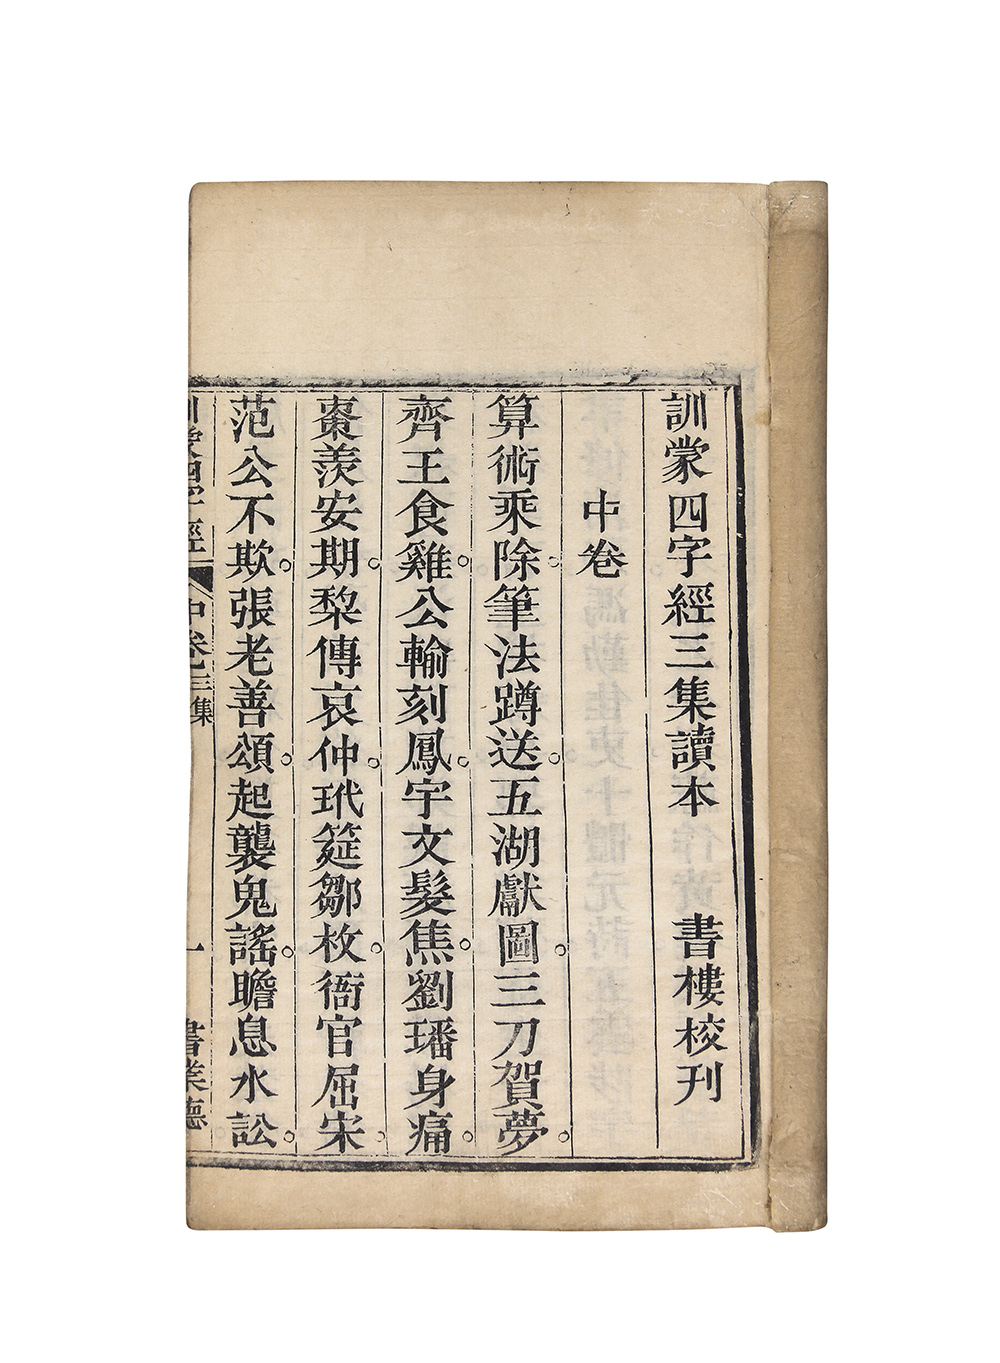 訓蒙四字經三集讀本　書樓校刊
中卷
算術乘除。筆法蹲送。五湖獻圖。三刀賀夢。
齊王食雞。公輸刻鳳。宇文髮焦。劉璠身痛。
棗羨安期。棃傳哀仲。玳筵鄒枚。衙官屈宋。
范公不欺。張老善頌。起襲鬼謠。瞻息水訟。
訓蒙四字經　中卷三集　一　書業德